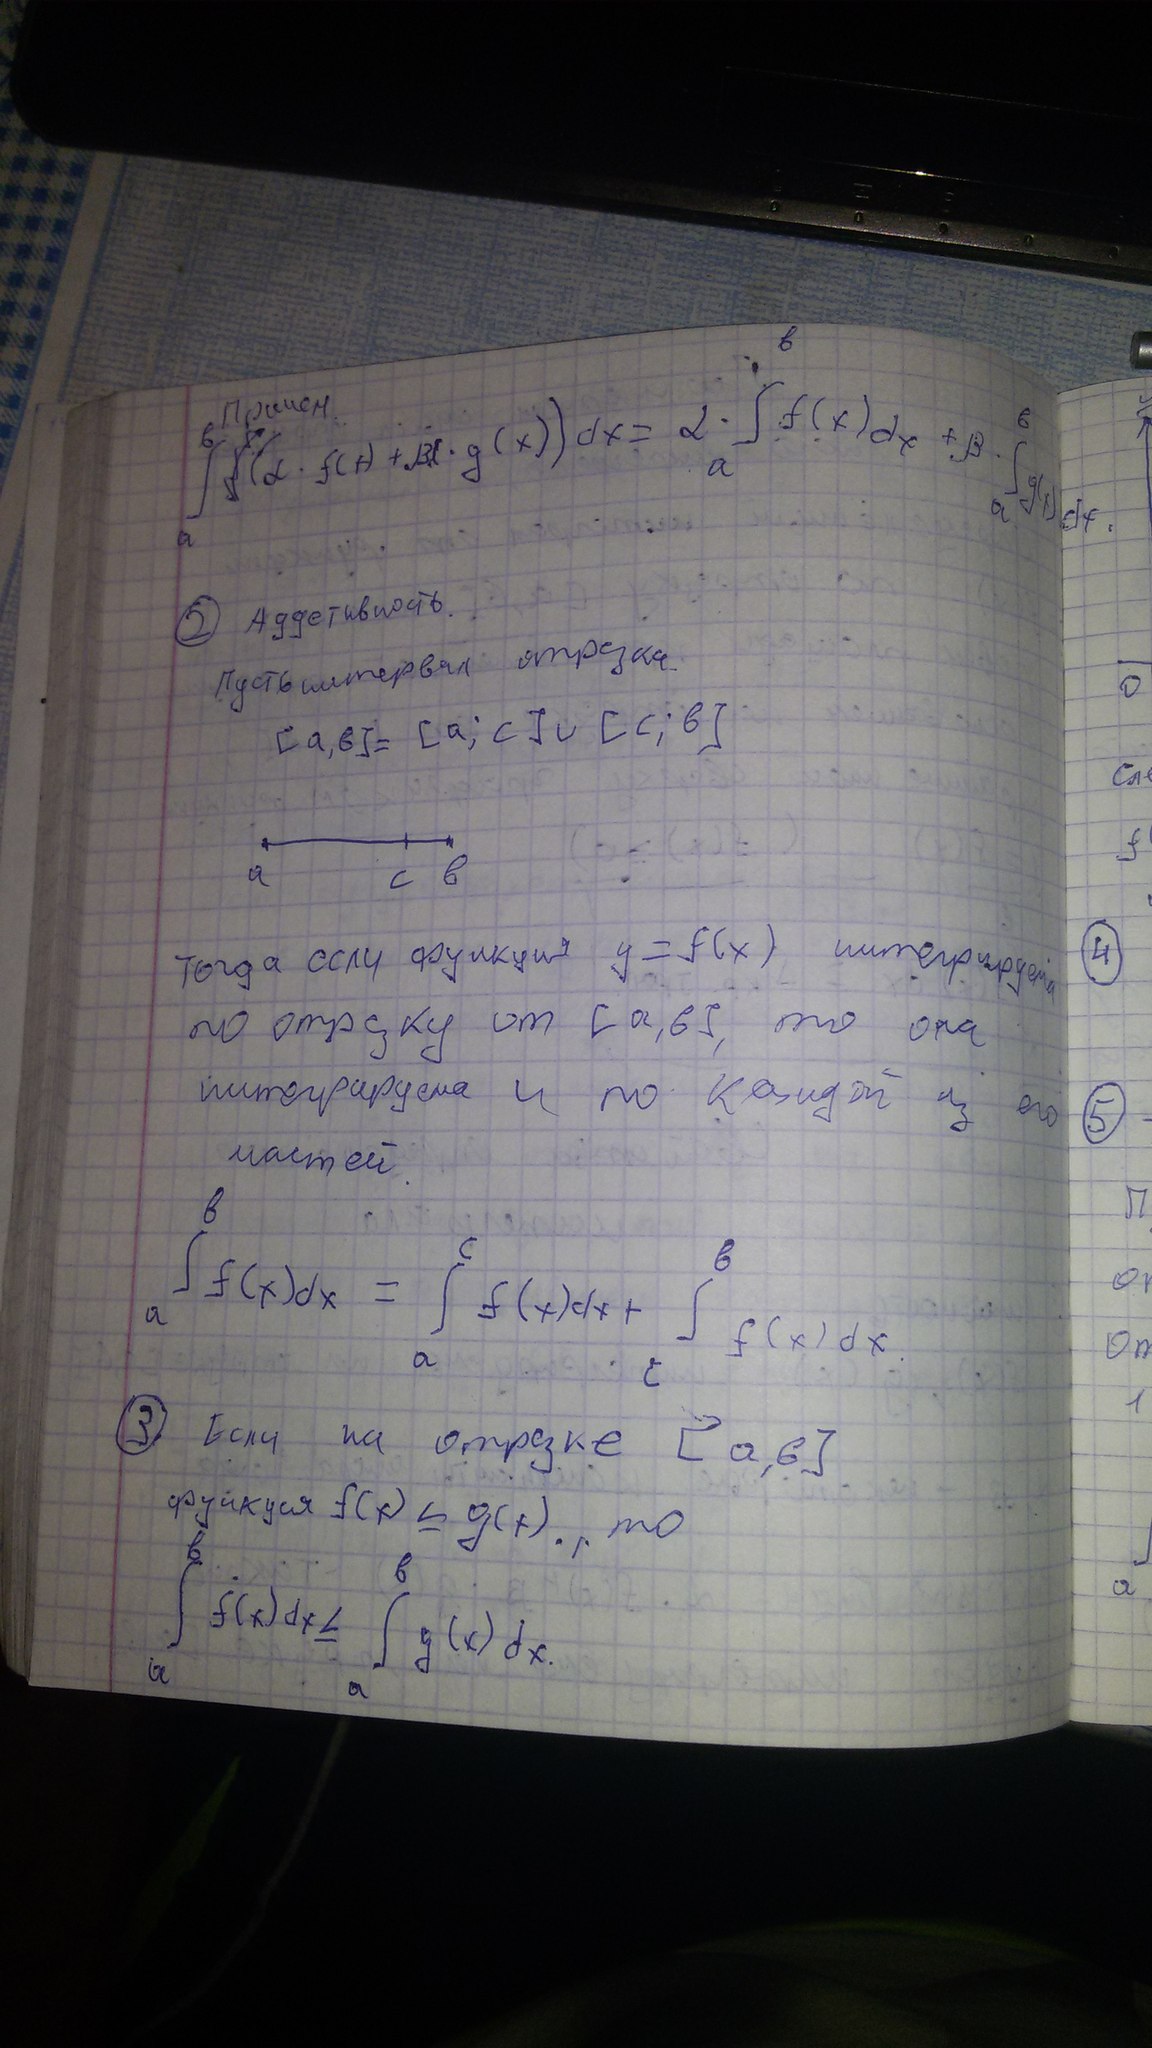 Причем
∫ₐᵇ (α · f(x) + β · g(x)) dx = α · ∫ₐᵇ f(x) dx + β · ∫ₐᵇ g(x) dx.
② Аддетивность.
Пусть интервал отрезка
[a,b] = [a; c] ∪ [c; b]
a c b
Тогда если функция y = f(x) интегрируема
по отрезку от [a,b], то она
интегрируема и по каждой из его
частей.
∫ₐᵇ f(x)dx = ∫ₐᶜ f(x)dx + ∫꜀ᵇ f(x)dx.
③ Если на отрезке [a,b]
функция f(x) ≤ g(x)., то
∫ₐᵇ f(x)dx ≤ ∫ₐᵇ g(x)dx.
0
④
⑤
1
a